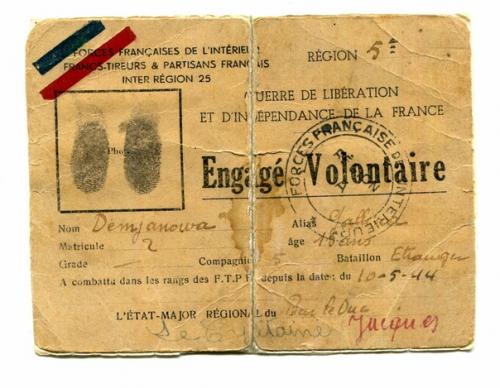 FORCES FRANÇAISES DE L'INTÉRIEUR
FRANCS-TIREURS & PARTISANS FRANÇAIS
INTER RÉGION 25
RÉGION 5e
GUERRE DE LIBÉRATION
ET D'INDÉPENDANCE DE LA FRANCE
Photo
Engagé Volontaire
FORCES FRANÇAISES DE L'INTÉRIEUR
Nom Demjanowa
Alias
Matricule 2
âge ans
Grade —
Compagnie 5
Bataillon Etranger
A combattu dans les rangs des F.T.P.F. depuis la date : du 10-5-44
L'ÉTAT-MAJOR RÉGIONAL du Bar le Duc
Le Capitaine
Jacques